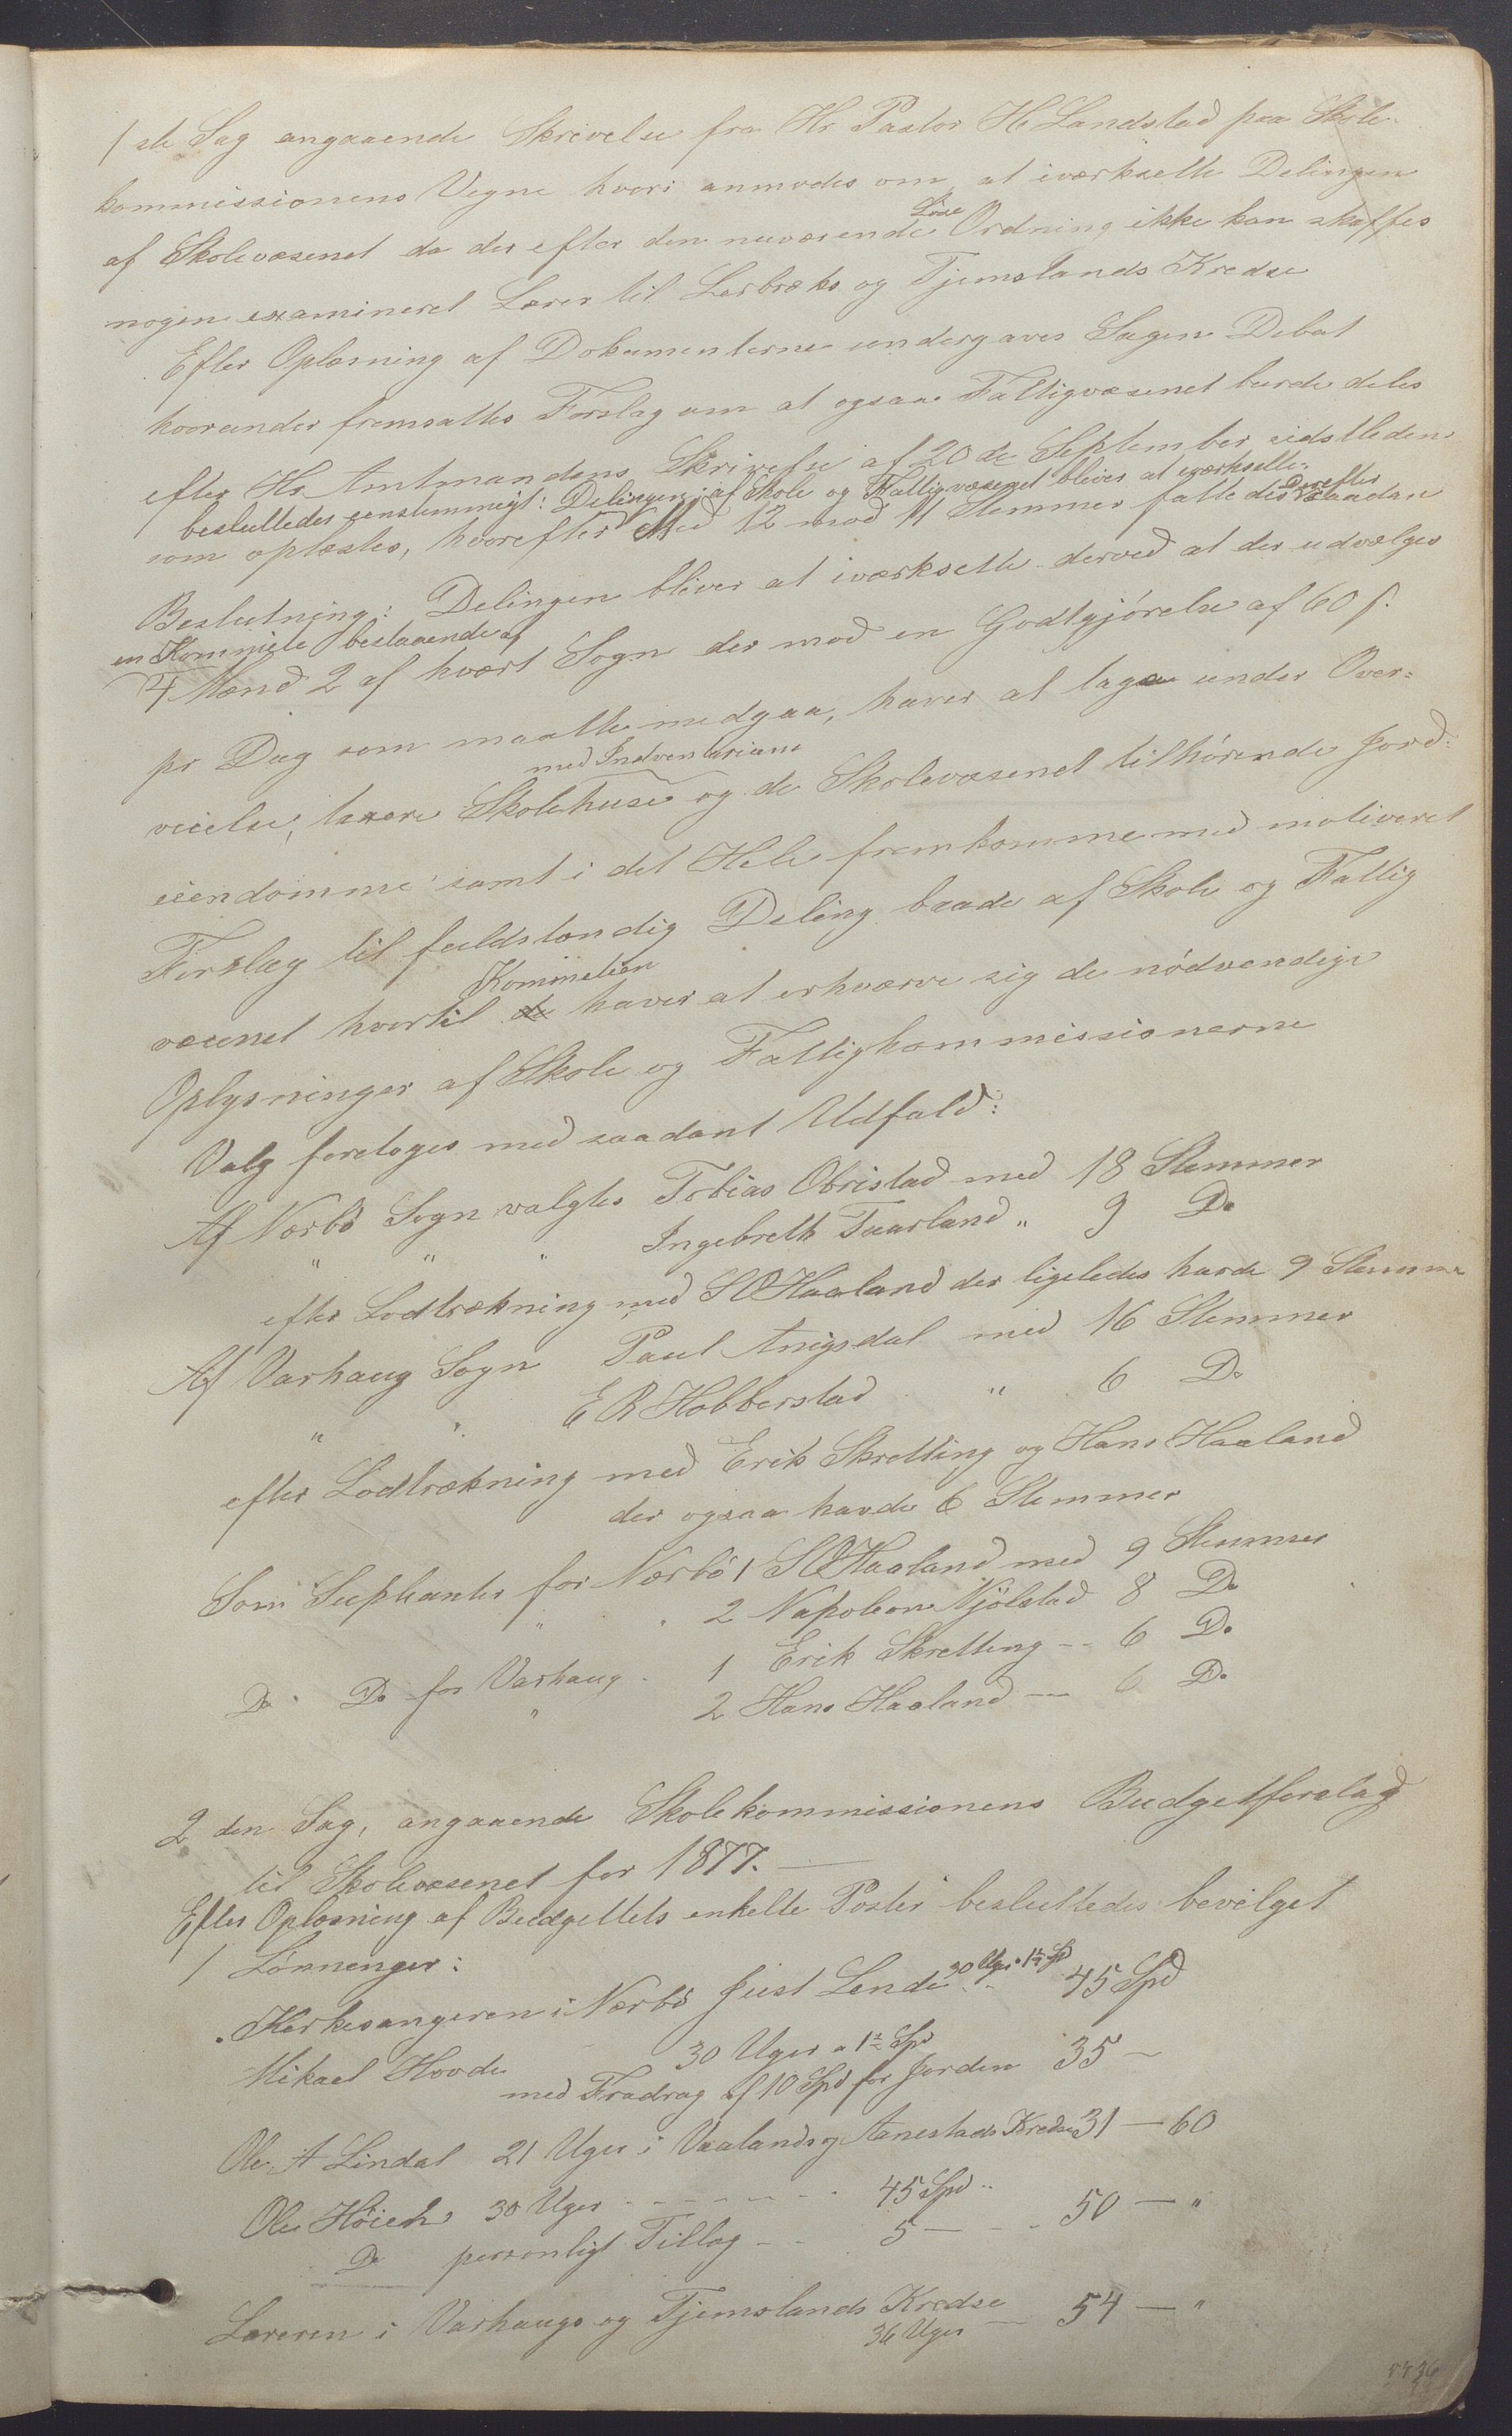 1ste Sag angaaende Skrivelse fra Hr Pastor H Landstad paa Skole-
kommissionens Vegne hvori anmodes om at iværksette Delingen
af Skolevæsenet da der efter den nuværende Løse Ordning ikke kan skaffes
nogen examineret Lærer til Lerbræks og Tjemslands Kredse
Efter Oplæsning af Dokumenterne undergaves Sagen Debat
hvorunder fremsattes Forslag om at ogsaa Fattigvæsenet burde deles
efter Hr Amtmandens Skrivelse af 20de September sidstleden
besluttedes eenstemmigt: Delingen af Skole og Fattigvæsenet bliver at iværksette. Derefter
som oplæstes, hvorefter Med 12 mod 11 Stemmer fattedes saadan
Beslutning: Delingen bliver at iværksette derved at der udvælges
en Kommite bestaaende af
4 Mænd 2 af hvært Sogn der mod en Godtgjórelse af 60 s.
pr Dag som maatte medgaa, haver at tage under Over-
med Indventarium
veielse, taxere Skolehuse og de Skolevæsenet tilhórende Jord-
eiendomme samt i det Hele fremkomme med motiveret
Forslag til fuldstændig Deling baade af Skole og Fattig
Kommiteen
væsenet hvortil de haver at erhværve sig de nódvendige
Oplysninger af Skole og Fattigkommissionerne
Valg foretoges med saadant Udfald:
Af Nærbö Sogn valgtes Tobias Obristad med 18 Stemmer
" " " Ingebreth Tuarland " 9 Do
efter Lodtrækning med S O Haaland der ligeledes havde 9 Stemme
Af Varhaug Sogn Paul Anigsdal med 16 Stemmer
" " E R Hobberstad " 6 Do
efter Lodtrækning med Erik Skretting og Hans Haaland
der ogsaa havde 6 Stemmer
Som Supleanter for Nærbó 1 S O Haaland med 9 Stemmer
" " 2 Napoleon Njólstad 8 Do
Do Do for Varhaug 1 Erik Skretting -- 6 Do
" 2 Hans Haaland — 6 Do
2den Sag, angaaende Skolekommissionens Budgetforslag
til Skolevæsenet for 1877. —
Efter Oplæsning af Budgettets enkelte Poster besluttedes bevilget
1 Lónnenger:
Kirkesangeren i Nærbó Just Lende 30 Uger a 1½ Spd 45 Spd
Mikael Hovde 30 Uger a 1½ Spd
med Fradrag af 10 Spd for Jorden 35 —
Ole A Lindal 21 Uger i Vaalands og Aanestads Kredse 31 — 60
Ole Höieh 30 Uger - - - - - 45 Spd
Do personligt Tillæg - - 5 — - - 50 — "
Læreren i Varhaugs og Tjemslands Kredse
36 Uger — 54 — "